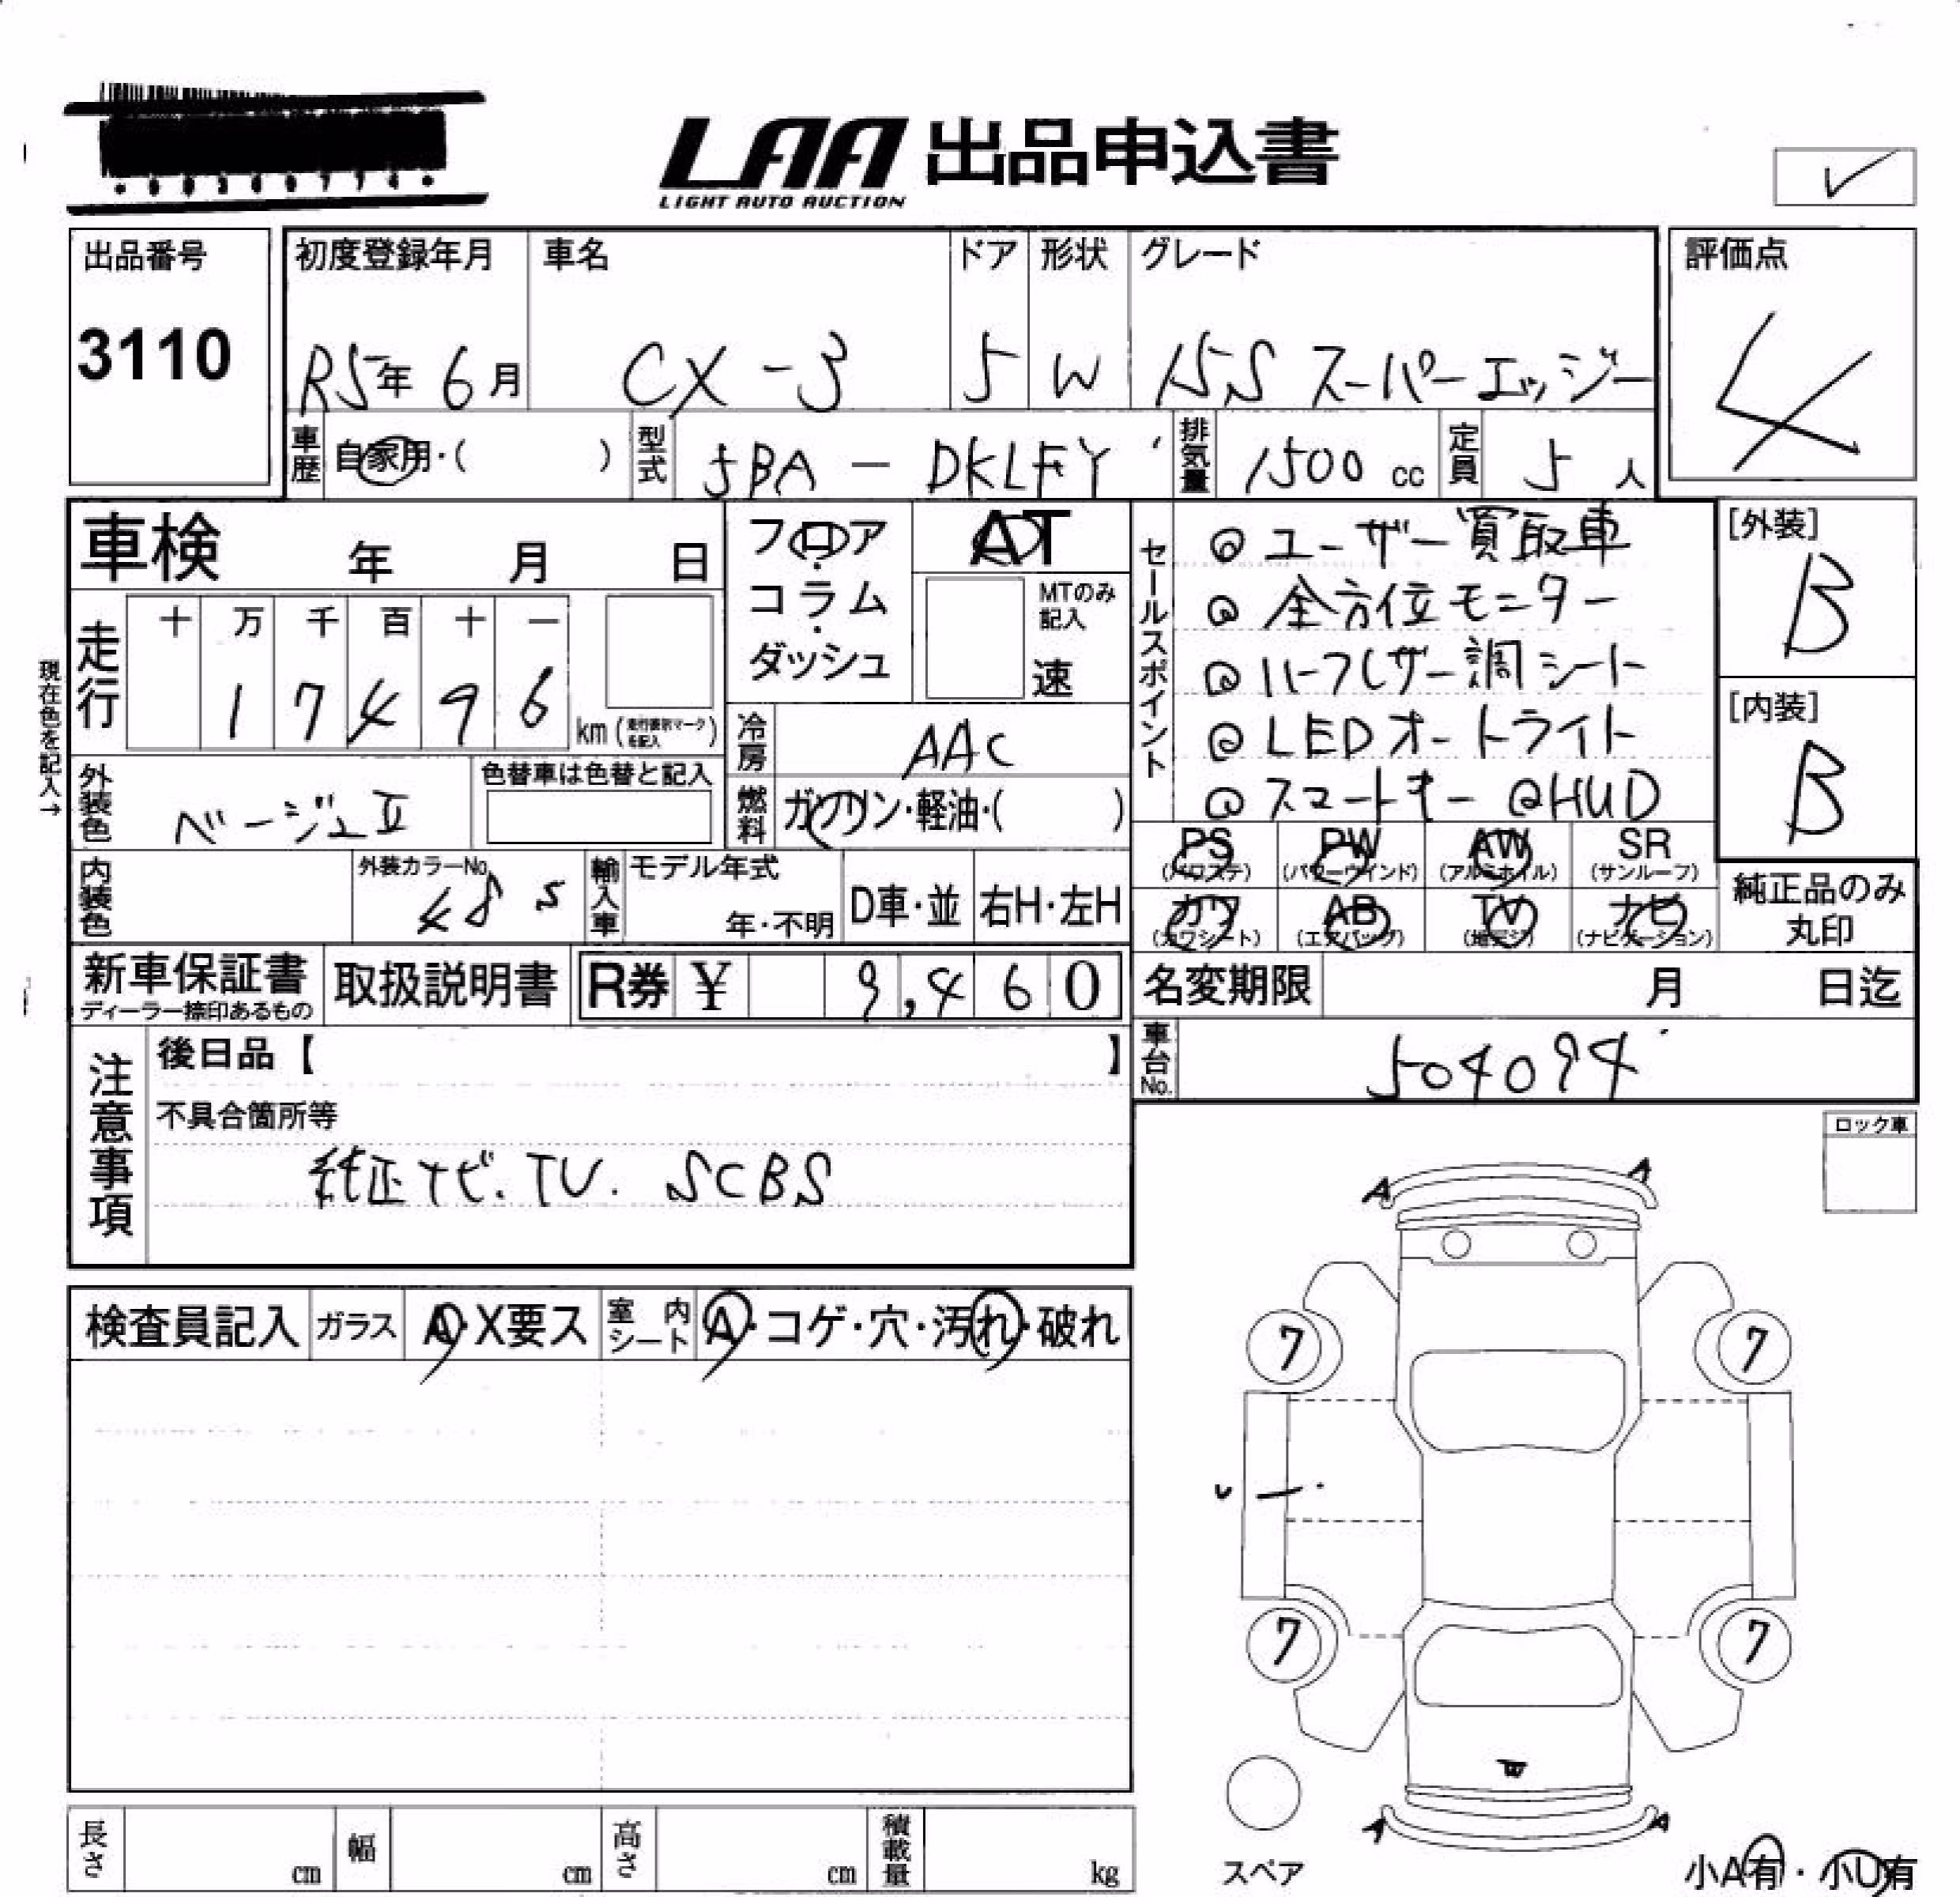 LAA 出品申込書
LIGHT AUTO AUCTION
出品番号 初度登録年月 車名 ドア 形状 グレード 評価点
3110 R5年 6月 CX-3 5 W 15S スーパーエッジー 4
車歴 自家用・( ) 型式 5BA - DKLFY 排気量 1500 cc 定員 5 人
車検 年 月 日
フロア・コラム・ダッシュ
AT
MTのみ記入
速
セールスポイント
@ ユーザー買取車
@ 全方位モニター
@ ハーフレザー調シート
@ LEDオートライト
@ スマートキー @HUD
[外装]
B
[内装]
B
走行 十 万 千 百 十 一
1 7 4 9 6 km (
現在色を記入→
冷房 AAC
外装色 ベージュII 色替車は色替と記入
燃料 ガソリン・軽油・( )
PS PW AW SR
(パワステ) (パワーウインド) (アルミホイル) (サンルーフ)
カワ AB TV ナビ
(カワシート) (エアバッグ) (地デジ) (ナビゲーション)
純正品のみ
丸印
内装色 外装カラーNo. 48S 輸入車 モデル年式 年・不明 D車・並 右H・左H
新車保証書 取扱説明書 R券 ¥ 9,460
ディーラー捺印あるもの
名変期限 月 日迄
車台No. 504094
注意事項
後日品【 】
不具合箇所等
純正ナビ. TV. SCBS
ロック車
A A
検査員記入 ガラス A・X要ス 室内シート A・コゲ・穴・汚れ・破れ
7 7
7 7
W
A A
スペア
小A有・小U有
長さ cm 幅 cm 高さ cm 積載量 kg